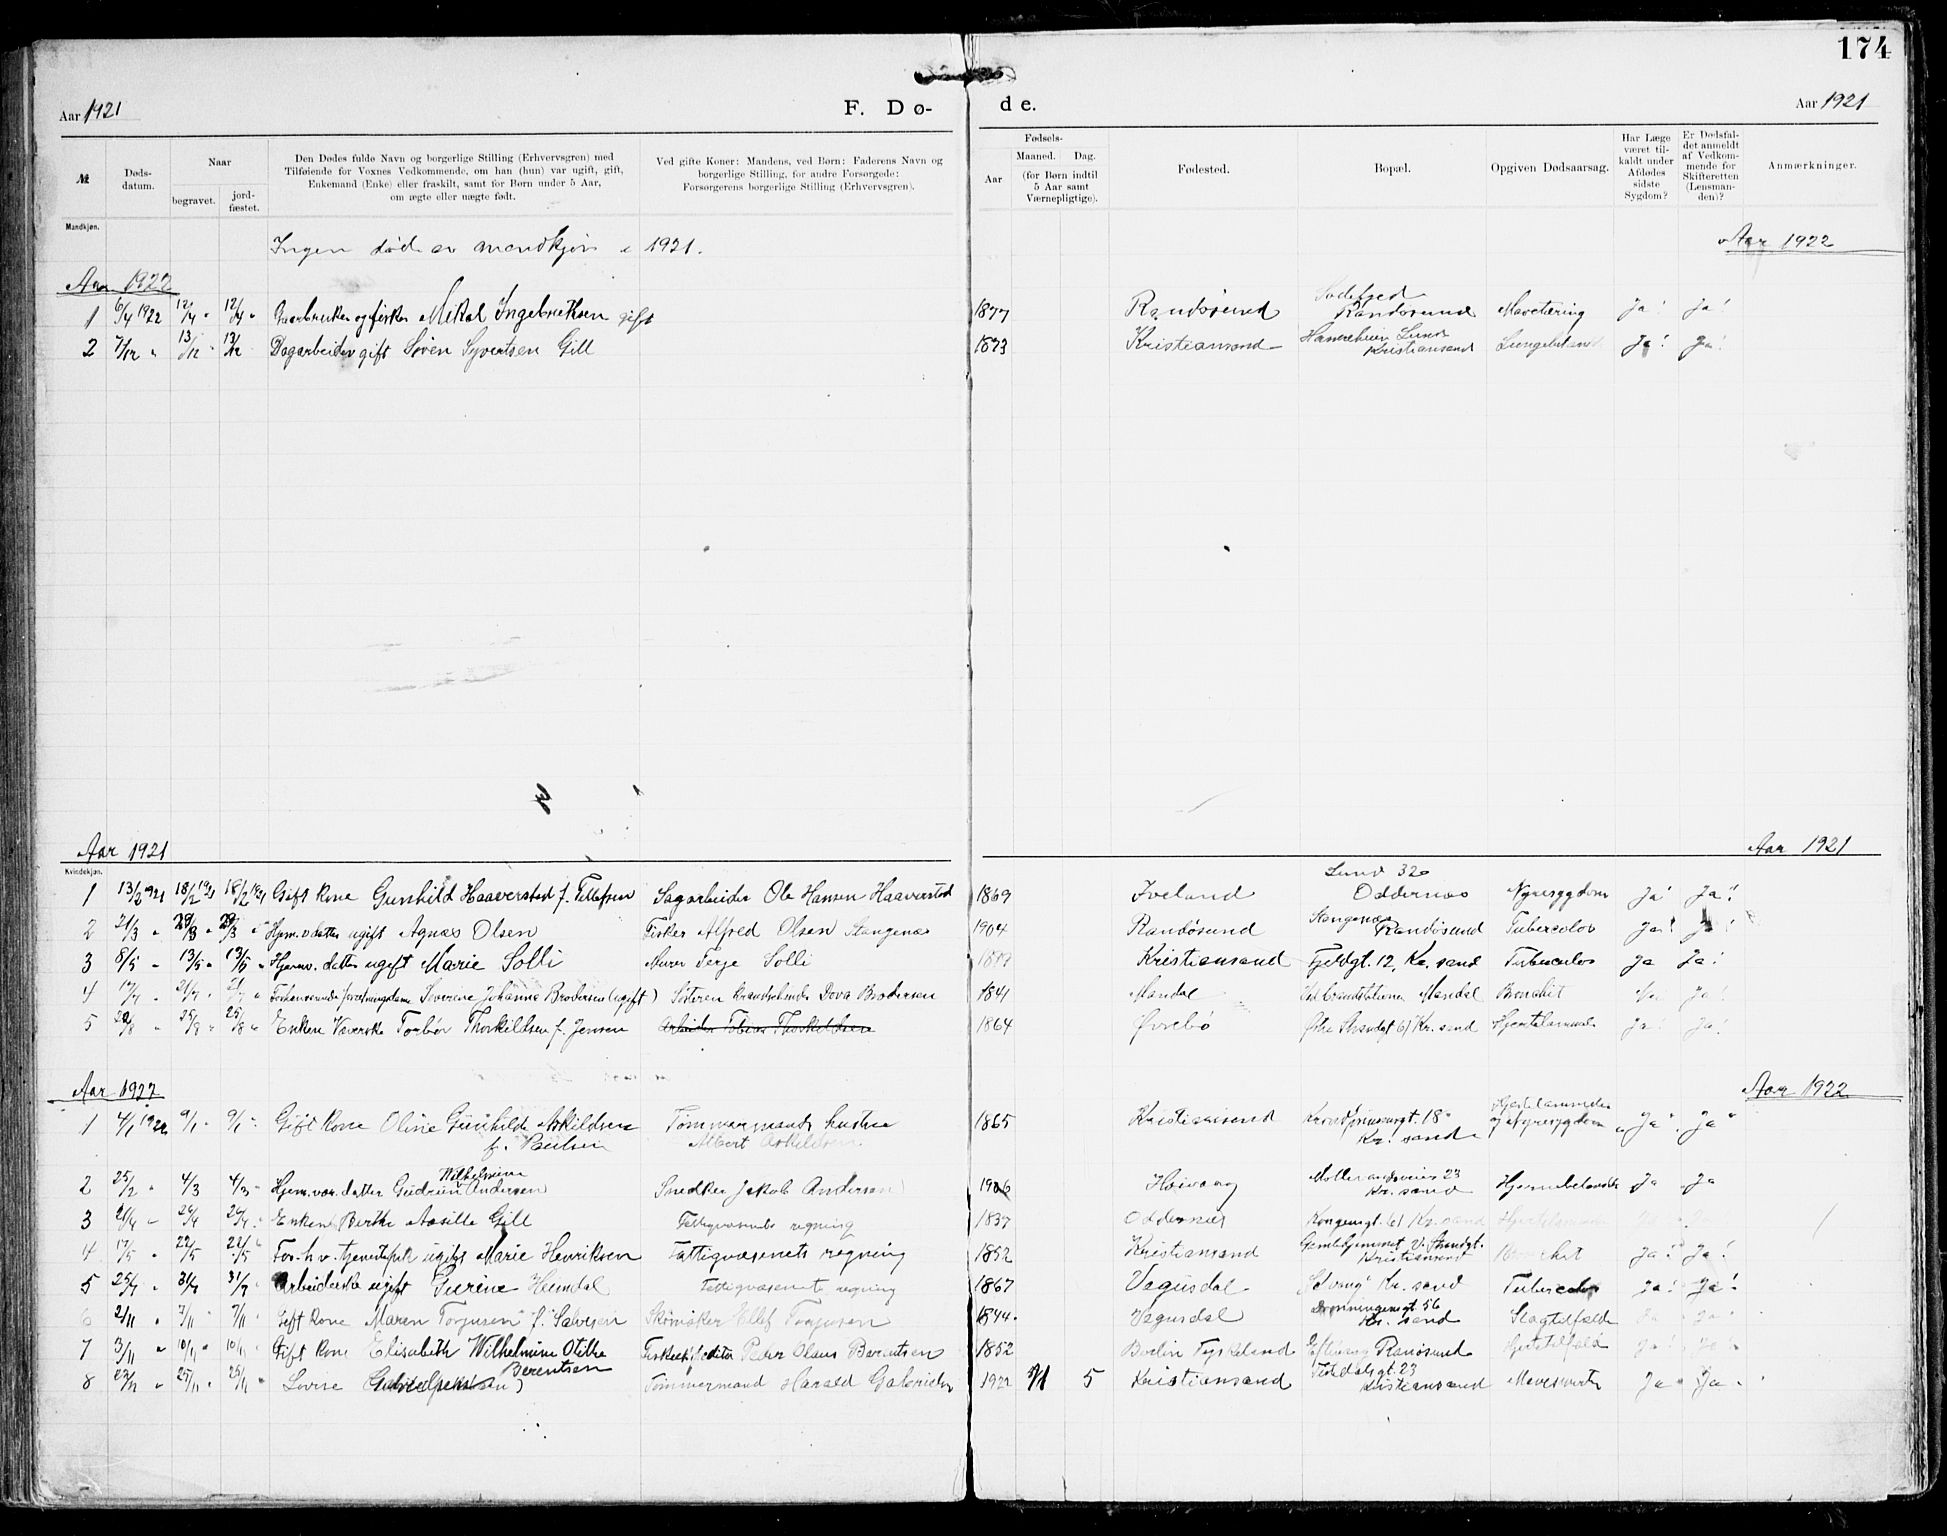 174
Aar 1921 F. Dø- de. Aar 1921
№ Døds-datum. Naar begravet. jord-fæstet. Den Dødes fulde Navn og borgerlige Stilling (Erhvervsgren) med Tilføiende for Voxnes Vedkommende, om han (hun) var ugift, gift, Enkemand (Enke) eller fraskilt, samt for Børn under 5 Aar, om ægte eller uægte født. Ved gifte Koner: Mandens, ved Børn: Faderens Navn og borgerlige Stilling, for andre Forsørgede: Forsørgerens borgerlige Stilling (Erhvervsgren). Fødsels- Aar Maaned. Dag. (for Børn indtil 5 Aar samt Værnepligtige). Fødested. Bopæl. Opgiven Dødsaarsag. Har Læge været til-kaldt under Afdødes sidste Sygdom? Er Dødsfal-det anmeldt af Vedkom-mende for Skifteretten (Lensman-den)? Anmærkninger.
Mandkjøn.
Ingen død av mandkjøn i 1921. Aar 1922
Aar 1922
1 6/4 1922 12/4 " 12/4 " Gaardbruker og fisker Mikal Ingebrethsen gift 1877 Randøsund Randøsund Ja! Ja!
2 7/12 " 13/12 13/12 Dagarbeider gift Søren Syvertsen Gill 1873 Kristiansand Lund Kristiansand Ja! Ja!
Aar 1921 Aar 1921
Kvindekjøn.
1 13/2 1921 18/2 1921 18/2 1921 Gift Kone Gunhild Haaverstad f. Tellefsen Sagarbeider Ole Hansen Haaverstad 1869 Iveland Lund 32 Oddernes Nyresygdom Ja! Ja!
2 21/3 " 29/3 " 29/3 " Hjem.v. datter ugift Agnes Olsen Fisker Alfred Olsen Stangenes 1904 Randøsund Stangenes Randøsund Tubercolos Ja! Ja!
3 8/5 " 13/5 " 13/5 " Hjemv. datter ugift Marie Solli Murer Terje Solli Kristiansand Fjeldgt. 12, Kr. sand Tuberculos Ja Ja!
4 17/7 " 21/7 " 21/7 " Severine Johanne Brodersen (ugift) Søsteren Dova Brodersen 1841 Mandal Mandal Bronchit Nei Ja!
5 22/8 " 25/8 " 25/8 " Enken Væverske Torbør Thorkildsen f. Jensen Arbeider Tobias Thorkildsen 1864 Øvrebø Østre Strandgt 61 Kr. sand Ja! Ja!
Aar 1922 Aar 1922
1 4/1 1922 9/1 " 9/1 " Gift Kone Oline Gunhilde Askildsen Tømmermands hustru 1865 Kristiansand Kronprinsensgt. 18 og Nyresygdom Ja " Ja "
f. Paulsen Albert Askildsen Kr. sand
2 25/2 " 4/3 4/3 " Hjem.vær. datter Gudrun Wilhelmine Andersen Snedker Jakob Andersen 1906 Høivaag 23 Kr. sand Ja Ja
3 21/4 " 26/4 26/4 " Enken Berthe Aasille Gill Fattigvæsenets regning 1837 Oddernes Kongensgt. 61 Kr. sand
4 17/5 " 22/5 22/5 " Marie Henriksen Fattigvæsenets regning 1852 Kristiansand Gamlehjemmet V. Strandgt. Kristiansand Ja! Ja!
5 25/7 " 31/7 31/7 " Arbeiderske ugift Gurine Heimdal Fattigvæsenets regning 1867 Vegusdal Kr. sand Tubercolos Ja! Ja!
6 2/11 " 7/11 " 7/11 " Gift Kone Maren Torjusen f. Salvesen Skomaker Ellef Torjusen 1844. Vegusdal Dronningensgt 56 Kr. sand Slagtilfælde Ja Ja
7 3/11 " 10/11 " 10/11 " Gift Kone Elisabeth Wilhelmine Otilie Berentsen Peder Olaus Berentsen 1852 Bodin Randøsund Hjertetilfæld
8 22/11 " 25/11 " 25/11 " Lovise Tømmermand Harald 1922 5 Kristiansand 23 Kristiansand Ja Ja